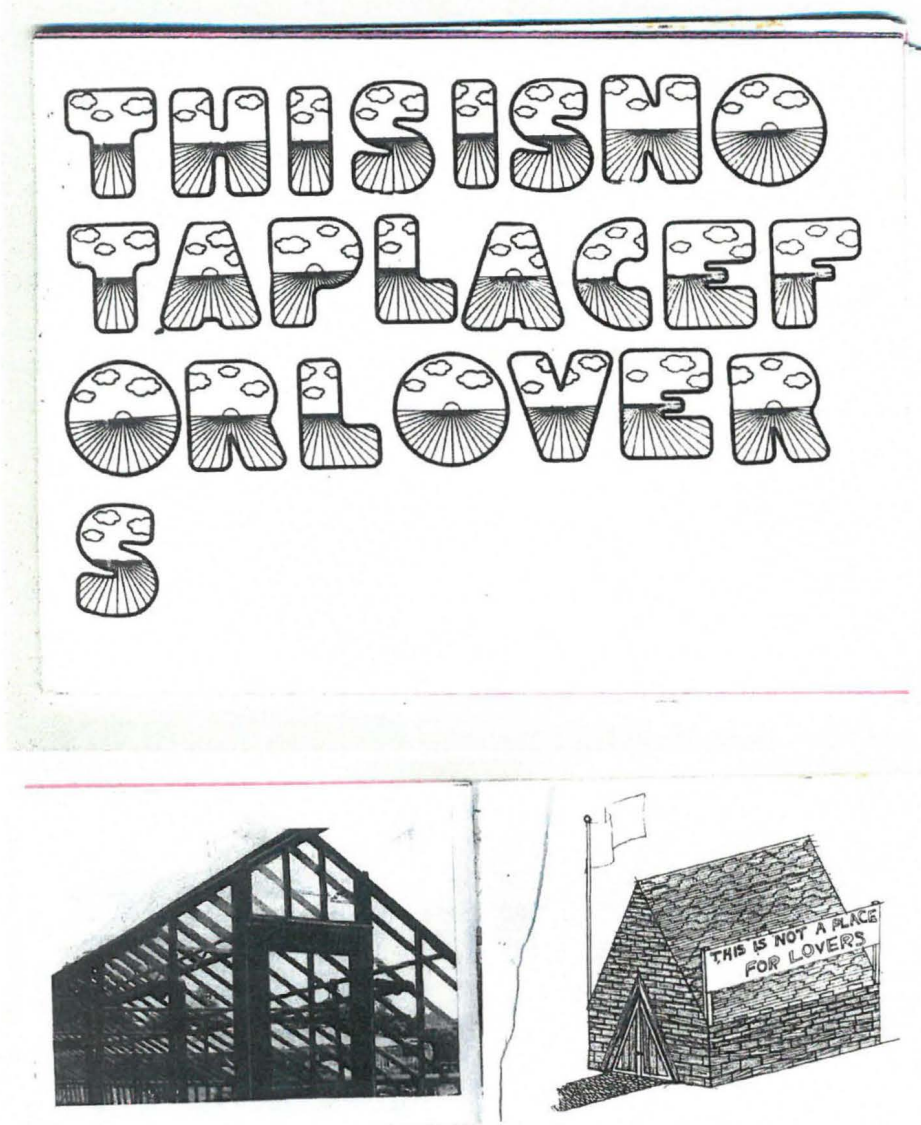 THISISNO
TAPLACEF
ORLOVER
S
THIS IS NOT A PLACE
FOR LOVERS